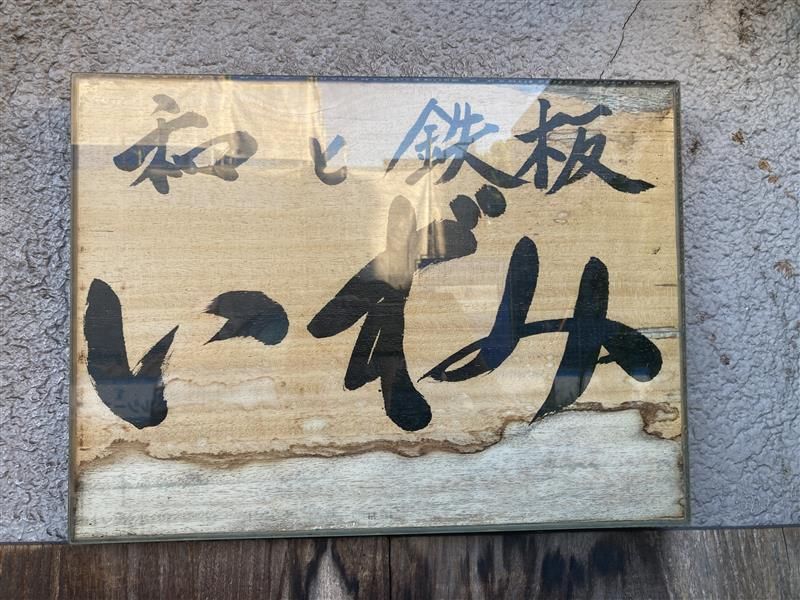 和と鉄板
いずみ